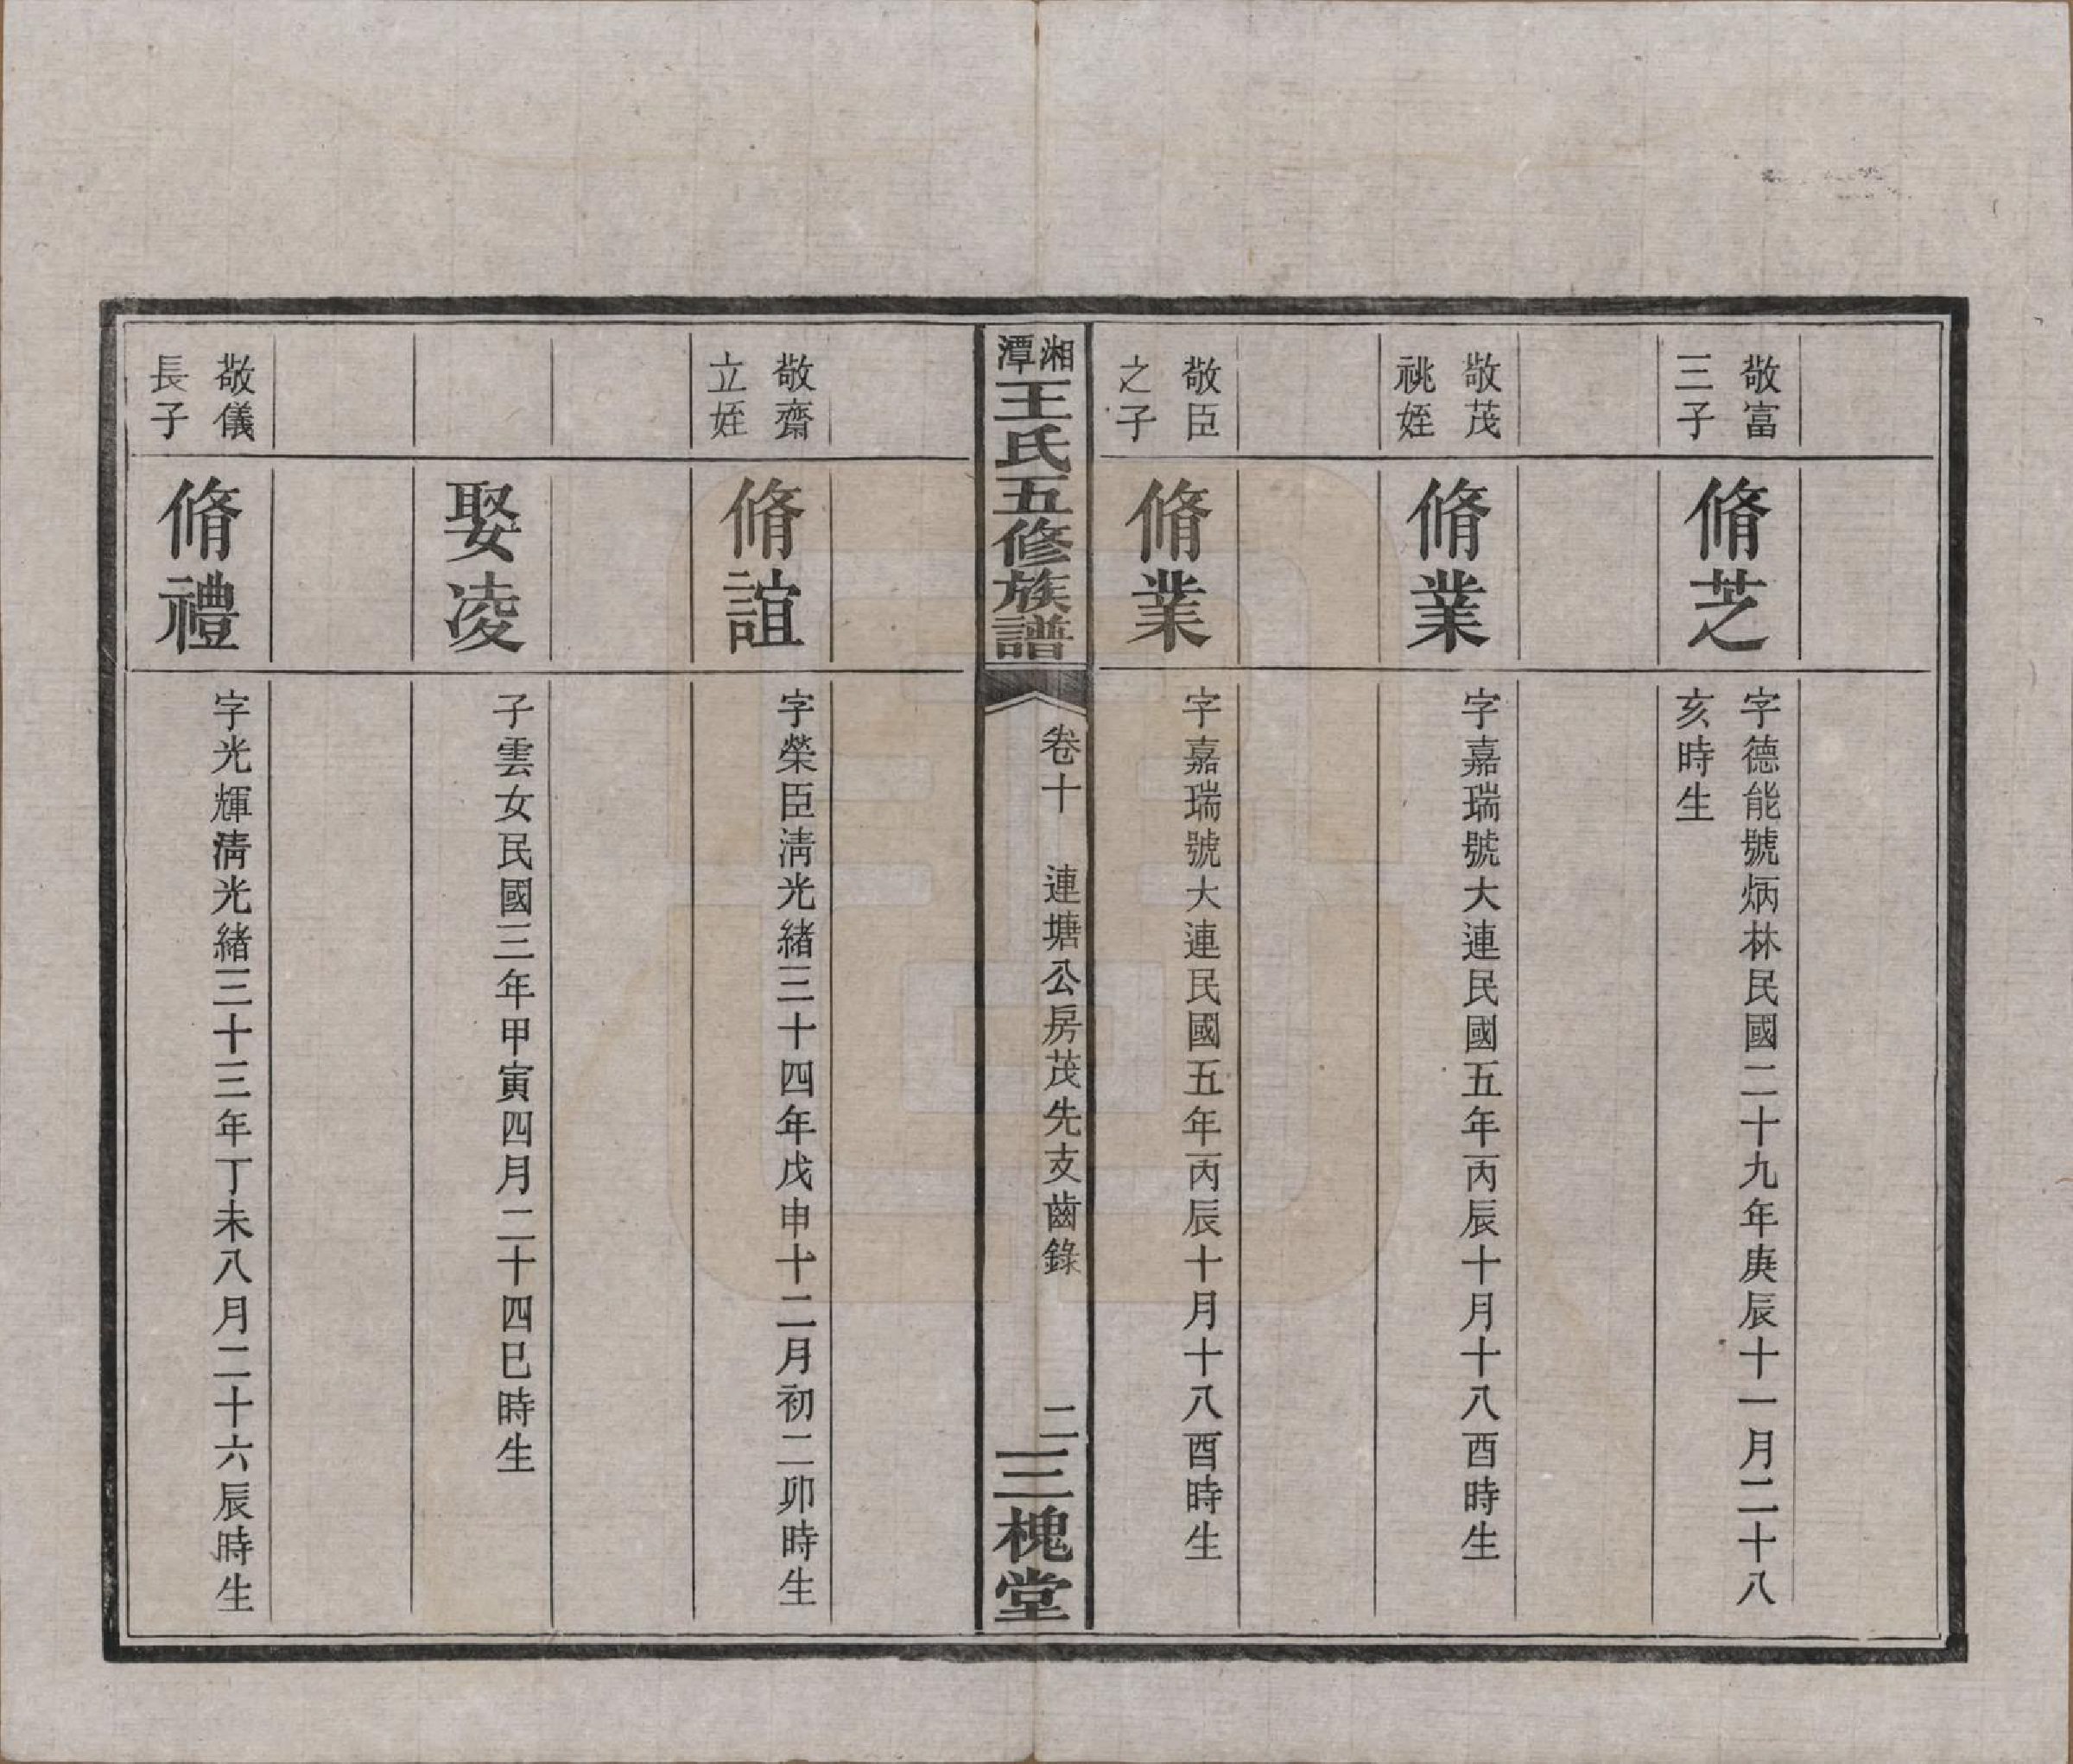 敬富
三子
脩芝
字德能號炳林民國二十九年庚辰十一月二十八
亥時生
敬茂
祧姪
脩業
字嘉瑞號大連民國五年丙辰十月十八酉時生
敬臣
之子
脩業
字嘉瑞號大連民國五年丙辰十月十八酉時生
湘潭王氏五修族譜
卷十　連塘公房茂先支齒錄　二
三槐堂
敬齋
立姪
脩誼
字榮臣淸光緒三十四年戊申十二月初二卯時生
娶凌
子雲女民國三年甲寅四月二十四巳時生
敬儀
長子
脩禮
字光輝淸光緒三十三年丁未八月二十六辰時生